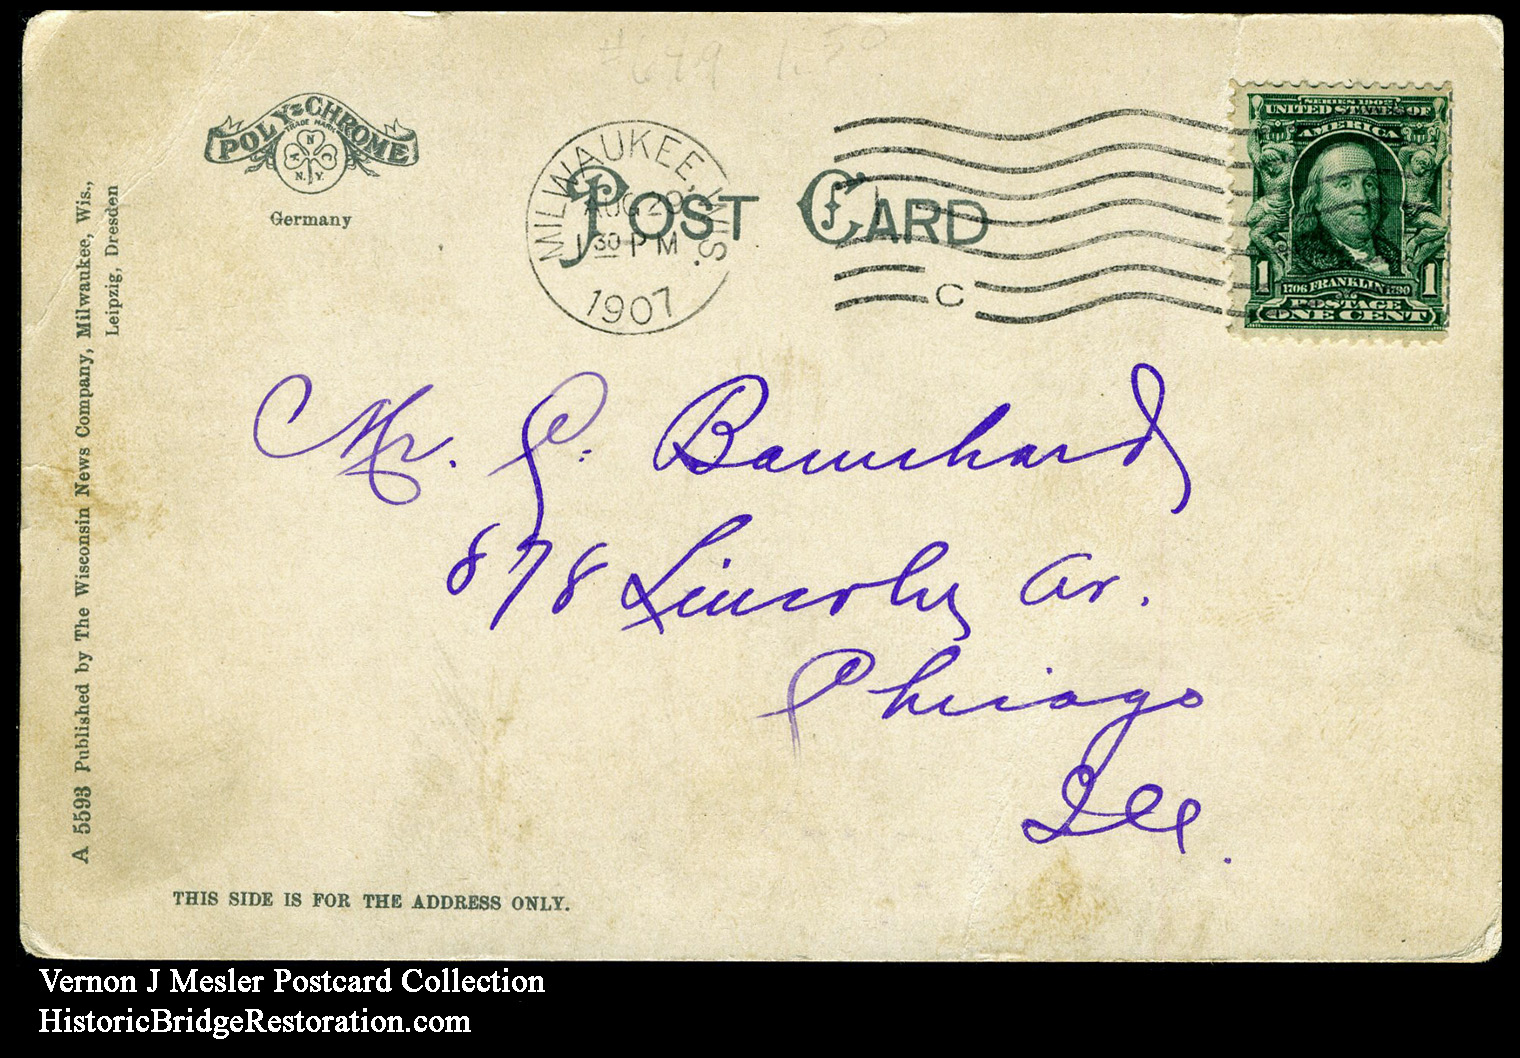 #679 1.50
POLY-CHROME
TRADE MARK
N
A C
N.Y.
Germany
MILWAUKEE, WIS.
AUG 20
30 PM
1907
POST CARD
C
SERIES 1902
UNITED STATES OF
AMERICA
1 1706 FRANKLIN 1790 1
POSTAGE
ONE CENT
Mr. C. Baumhard
878 Lincoln Av.
Chicago
Ill.
A 5593 Published by The Wisconsin News Company, Milwaukee, Wis.,
Leipzig, Dresden
THIS SIDE IS FOR THE ADDRESS ONLY.
Vernon J Mesler Postcard Collection
HistoricBridgeRestoration.com